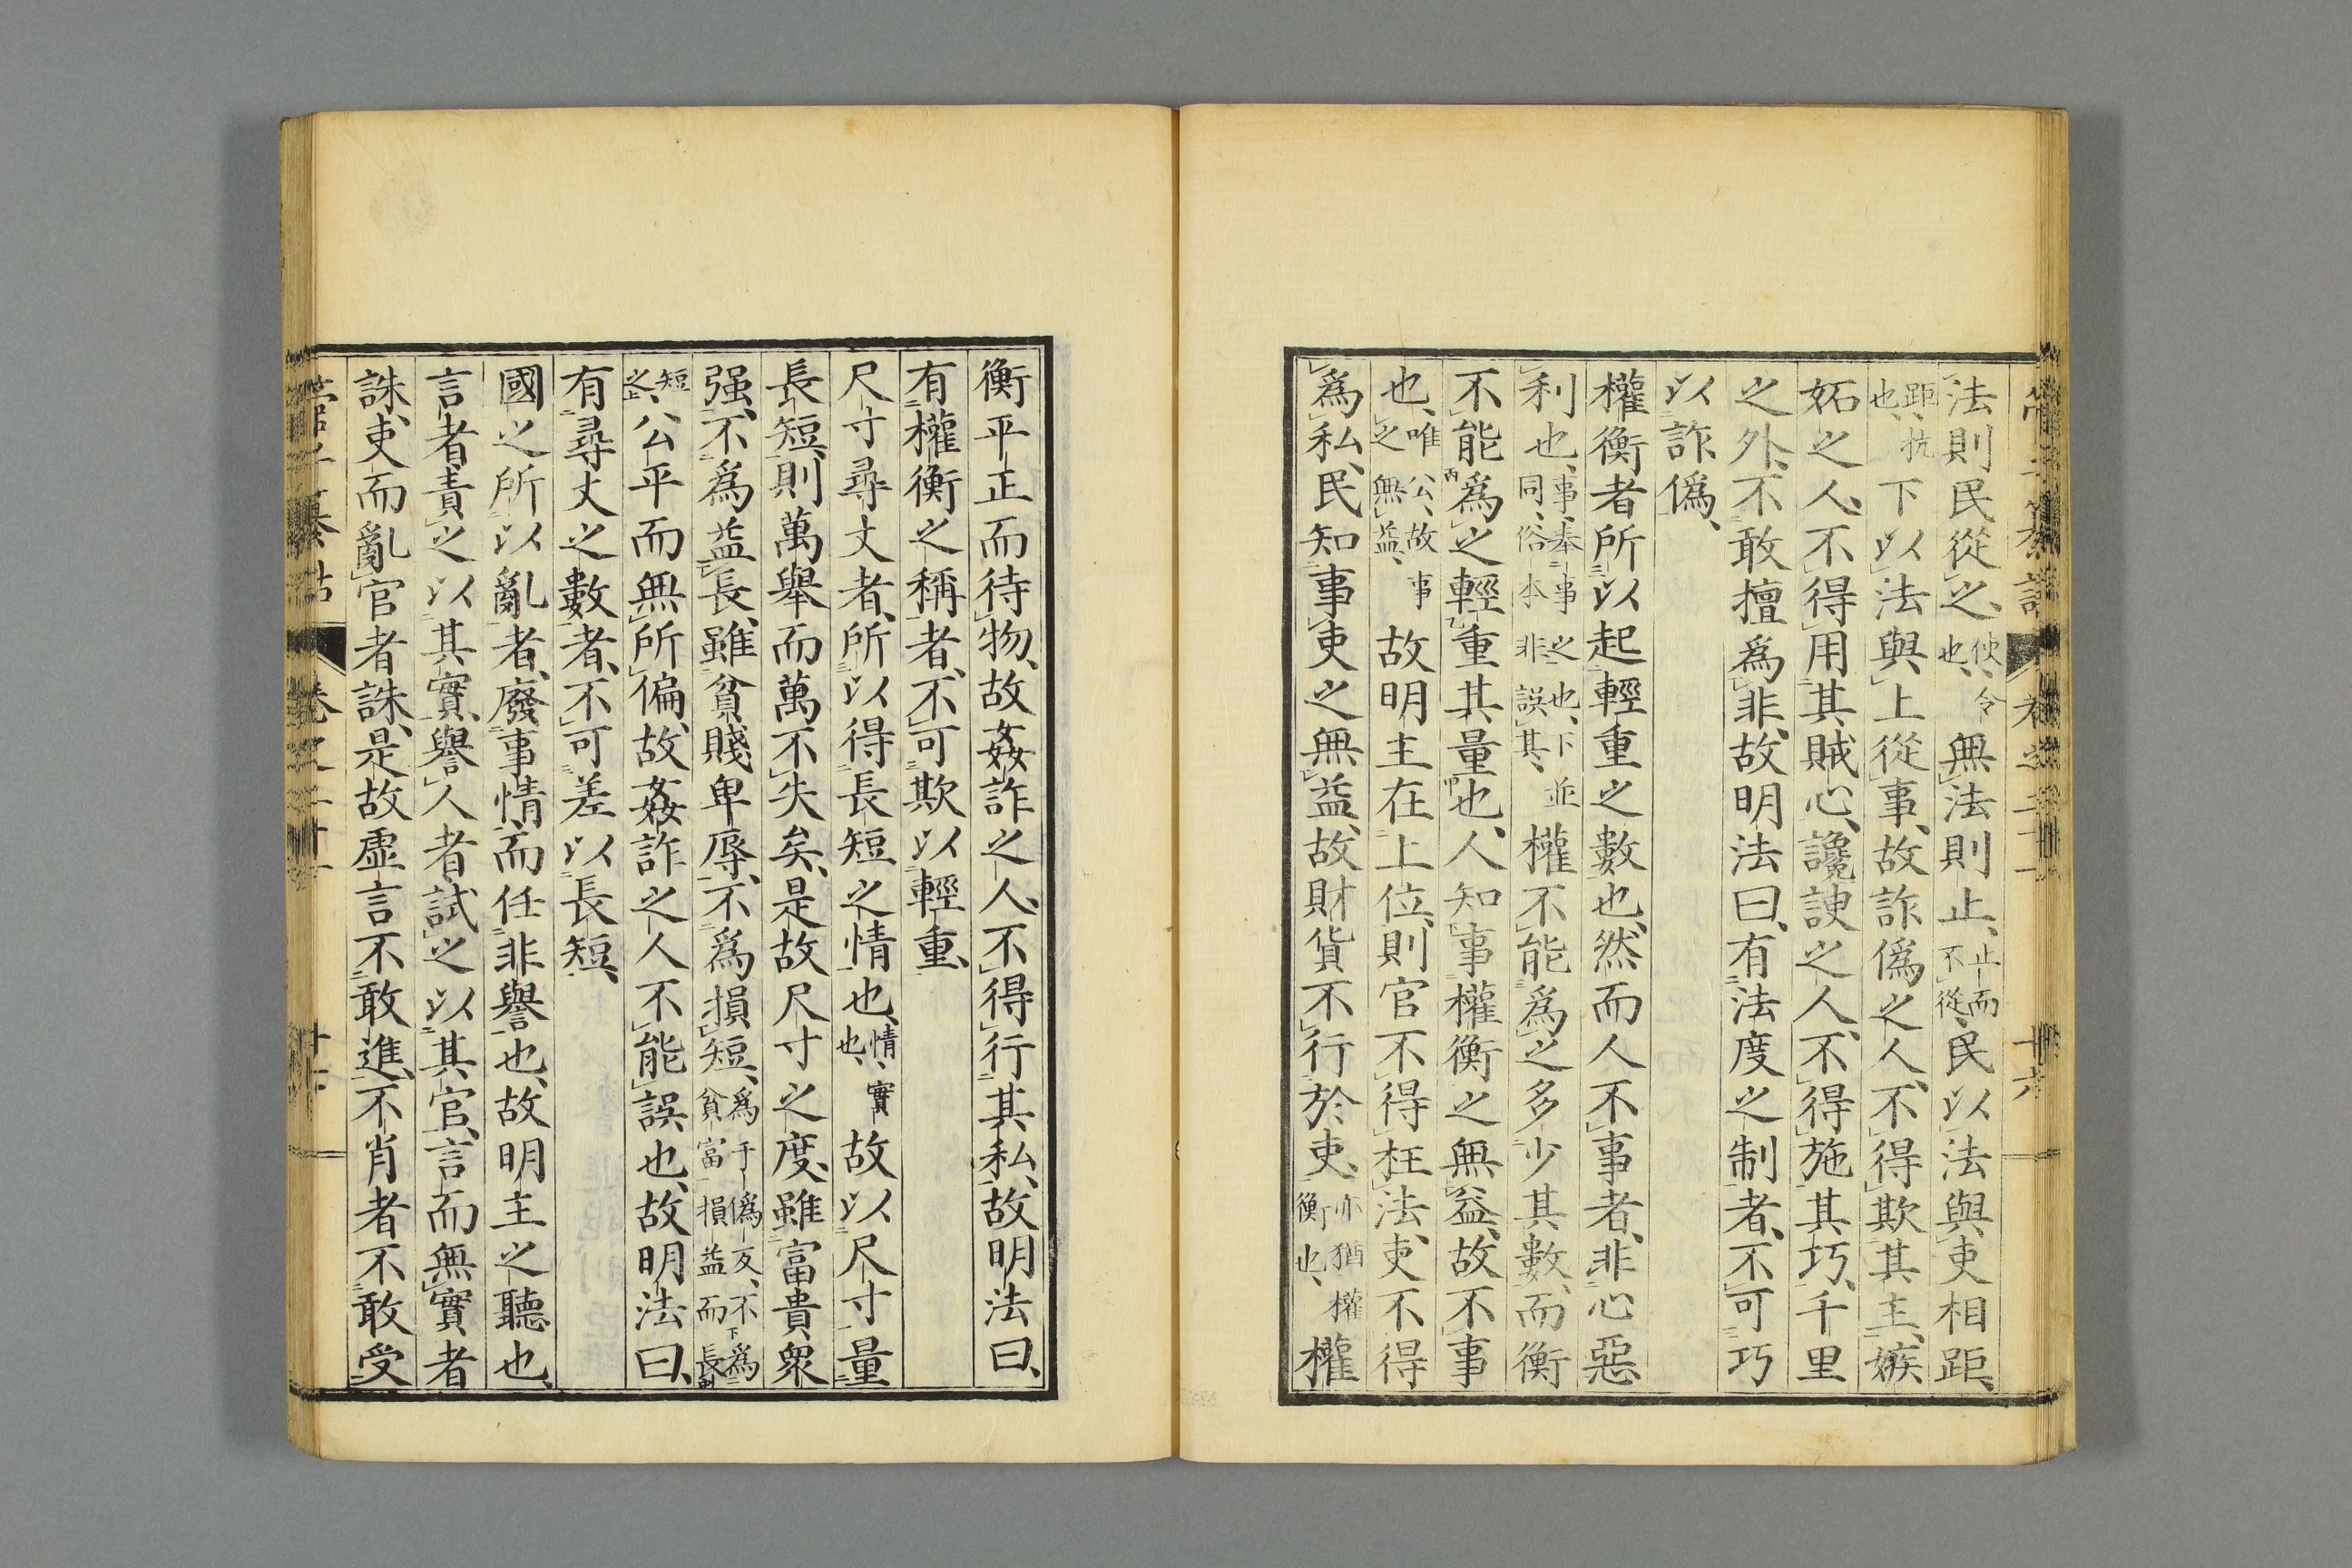 法則民從之、使令也、無法則止、止而不從、民以法與吏相距、
距、抗也、下以法與上從事、故詐僞之人、不得欺其主、嫉
妬之人、不得用其賊心、讒諛之人、不得施其巧、千里
之外、不敢擅爲非、故明法曰、有法度之制者、不可巧
以詐僞、
權衡者所以起輕重之數也、然而人不事者、非心惡
利也、事、奉事之也、下並同、俗本非誤其、權不能爲之多少其數、而衡
不能爲之輕重其量也、人知事權衡之無益、故不事
也、唯公、故事之無益、故明主在上位、則官不得枉法、吏不得
爲私、民知事吏之無益、故財貨不行於吏、亦猶權衡也、權
衡平正而待物、故姦詐之人、不得行其私、故明法曰、
有權衡之稱者、不可欺以輕重、
尺寸尋丈者、所以得長短之情也、情、實也、故以尺寸量
長短、則萬舉而萬不失矣、是故尺寸之度、雖富貴衆
强、不爲益長、雖貧賤卑辱、不爲損短、爲于僞反、不下爲貧富損益而長
短之、公平而無所偏、故姦詐之人不能誤也、故明法曰、
有尋丈之數者、不可差以長短、
國之所以亂者、廢事情而任非譽也、故明主之聽也、
言者責之以其實、譽人者試之以其官、言而無實者
誅、吏而亂官者誅、是故虛言不敢進、不肖者不敢受